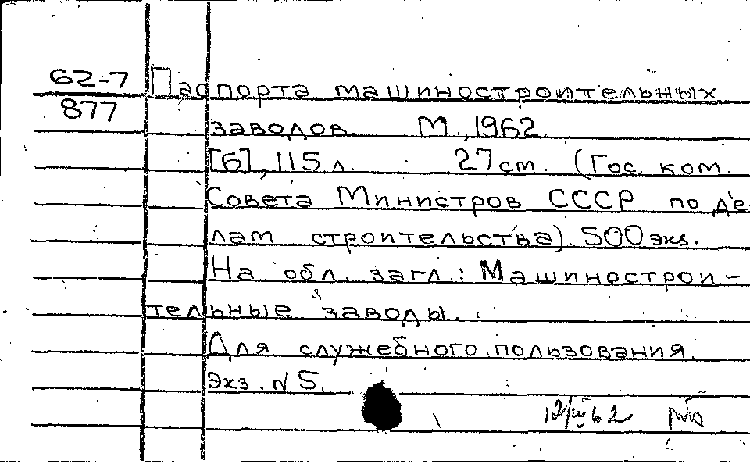 62-7 Паспорта машиностроительных
877
заводов. М., 1962.
[6], 115 л. 27 ст. (Гос. ком.
Совета Министров СССР по де-
лам строительства) 500 экз.
На обл. загл.: Машинострои-
тельные заводы.
Для служебного пользования.
Экз. N 5.
62